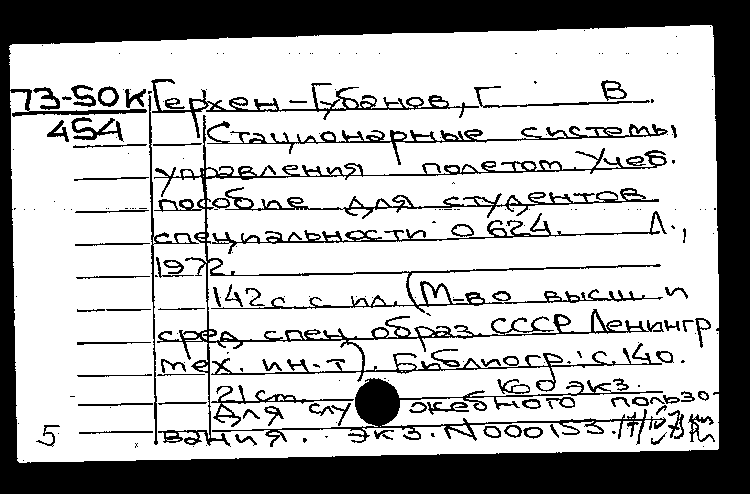 73-50к Герхен-Губанов, Г В
454 Стационарные системы
управления полетом. Учеб.
пособие для студентов
специальности 0624. Л.,
1972.
142с с ил. (М-во высш и
сред спец образ СССР Ленингр.
тех. ин-т). Библиогр.: с. 140.
21 см. 160 экз.
Для служебного пользо-
5 вания. экз. N 000153.